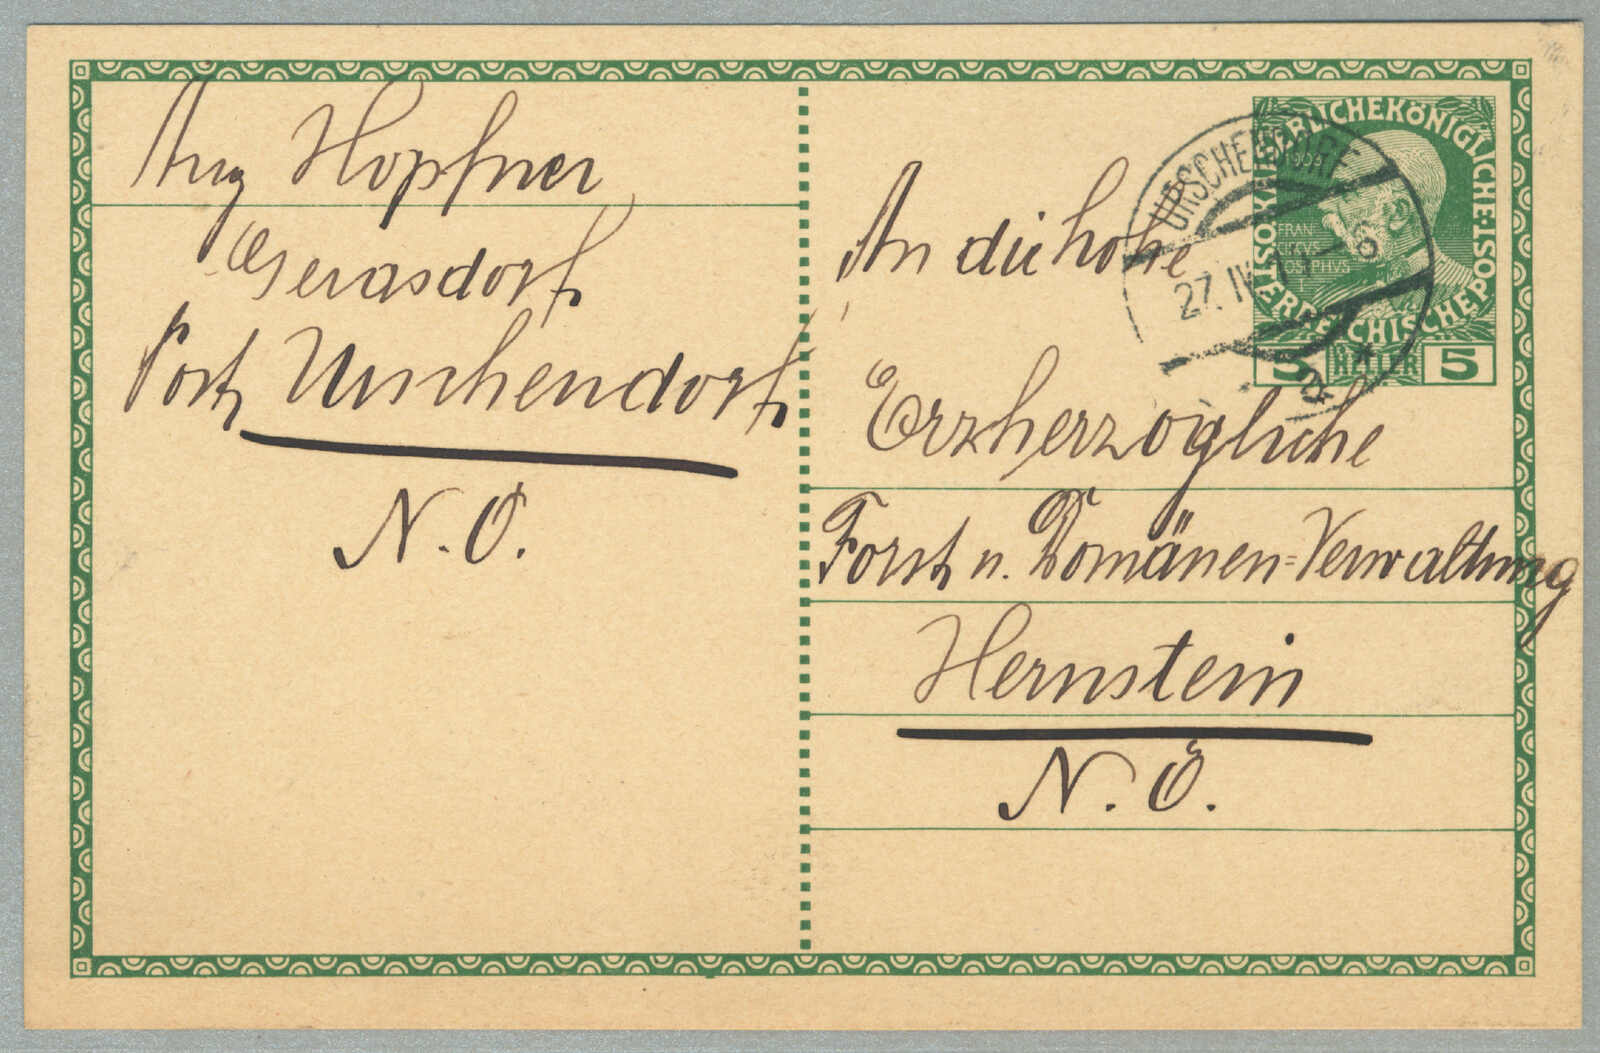 Aug Hopfner
Gerasdorf
Post Urschendorf
N.Ö.
An die hohe
Erzherzogliche
Forst u. Domänen=Verwaltung
Hernstein
N.Ö.
URSCHENDORF
27. IV. 6
KAISERLICHEKÖNIGLICHE
ÖSTERREICHISCHE POST
FRAN
CISCVS
IOSEPHVS
I
5 HELLER 5